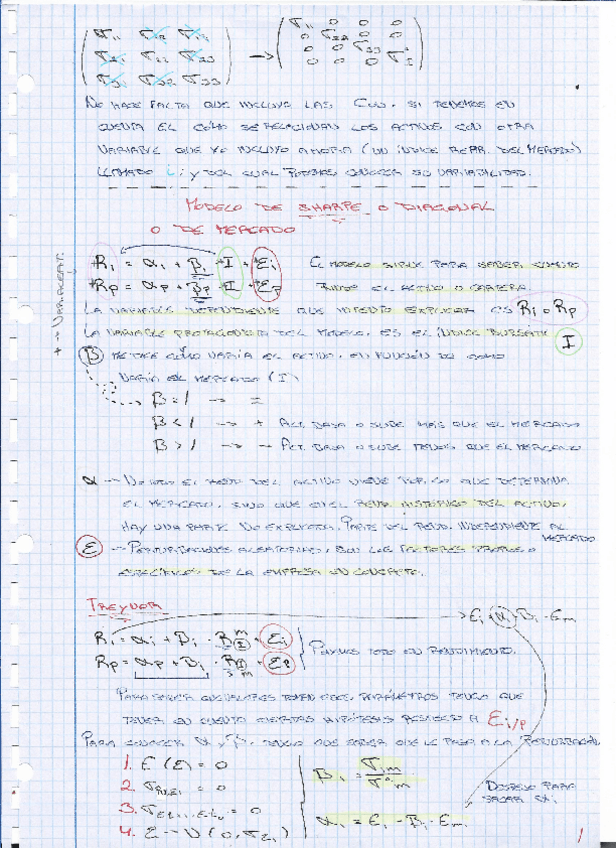 σ11 σ12 σ13
σ21 σ22 σ23
σ31 σ32 σ33
→
σ11 0 0 0
0 σ22 0 0
0 0 σ33 0
0 0 0 σI
NO HACE FALTA QUE INCLUYO LAS COV. SI TENEMOS EN
CUENTA EL CÓMO SE RELACIONAN LOS ACTIVOS CON OTRA
VARIABLE QUE YO INCLUYO AHORA (UN ÍNDICE REPR. DEL MERCADO)
LLAMADO i, Y DEL CUAL PODEMOS CONOCER SU VARIABILIDAD.
MODELO DE SHARPE O DIAGONAL
O DE MERCADO
Ri = αi + βi · I + Ei EL MODELO SIRVE PARA SABER CUANTO
Rp = αp + βp · I + Ep RINDE EL ACTIVO O CARTERA.
* → VAR. ALEAT.
LA VARIABLE DEPENDIENTE QUE INTENTO EXPLICAR ES Ri o Rp
LA VARIABLE PROTAGONISTA DEL MODELO, ES EL ÍNDICE BURSÁTIL I
β ME DICE CÓMO VARÍA EL ACTIVO, EN FUNCIÓN DE COMO
VARÍA EL MERCADO (I)
β = 1 → =
β < 1 → + ACT. BAJA O SUBE MÁS QUE EL MERCADO
β > 1 → - ACT. BAJA O SUBE MENOS QUE EL MERCADO
α → NO TODO EL DEL ACTIVO VIENE POR LO QUE DETERMINA
EL MERCADO, SINO QUE EN EL REND. HISTÓRICO DEL ACTIVO,
HAY UNA PARTE NO EXPLICADA. PARTE DEL REND. INDEPENDIENTE AL
MERCADO
E → PERTURBACIONES ALEATORIAS, SON LOS FACTORES PROPIOS O
ESPECÍFICOS DE LA EMPRESA EN CONCRETO.
TREYNOR
→ Ei + α - βi · Em
Ri = αi + βi · Rm + Ei
Rp = αp + βi · Rm + Ep
PONEMOS TODO EN RENDIMIENTO.
PARA SABER QUE VALORES TOMAN ESOS PARÁMETROS TENGO QUE
TENER EN CUENTA CIERTAS HIPÓTESIS RESPECTO A Ei/p
PARA CONOCER α Y β, TENGO QUE SABER QUE LE PASA A LA PERTURBACIÓN
1. E (E) = 0
2. σRI,Ei = 0
3. = 0
4. E → N (0, σEi)
βi = σim / σ²m
αi = Ei - βi · Em
DESPEJO PARA
SACAR αi
1